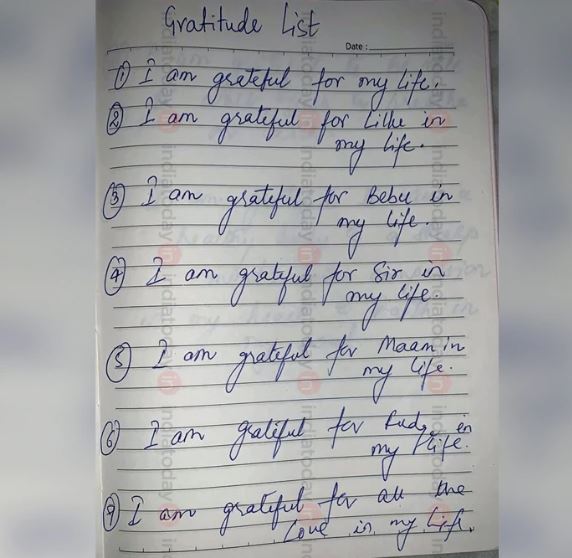 Gratitude List
Date :
① I am grateful for my Life.
② I am grateful for Lillu in
my life.
③ I am grateful for Bebu in
my life.
④ I am grateful for Sir in
my life.
⑤ I am grateful for Maam in
my life.
⑥ I am grateful for in
my life.
⑦ I am grateful for all the
Love in my Life.
indiatoday.in